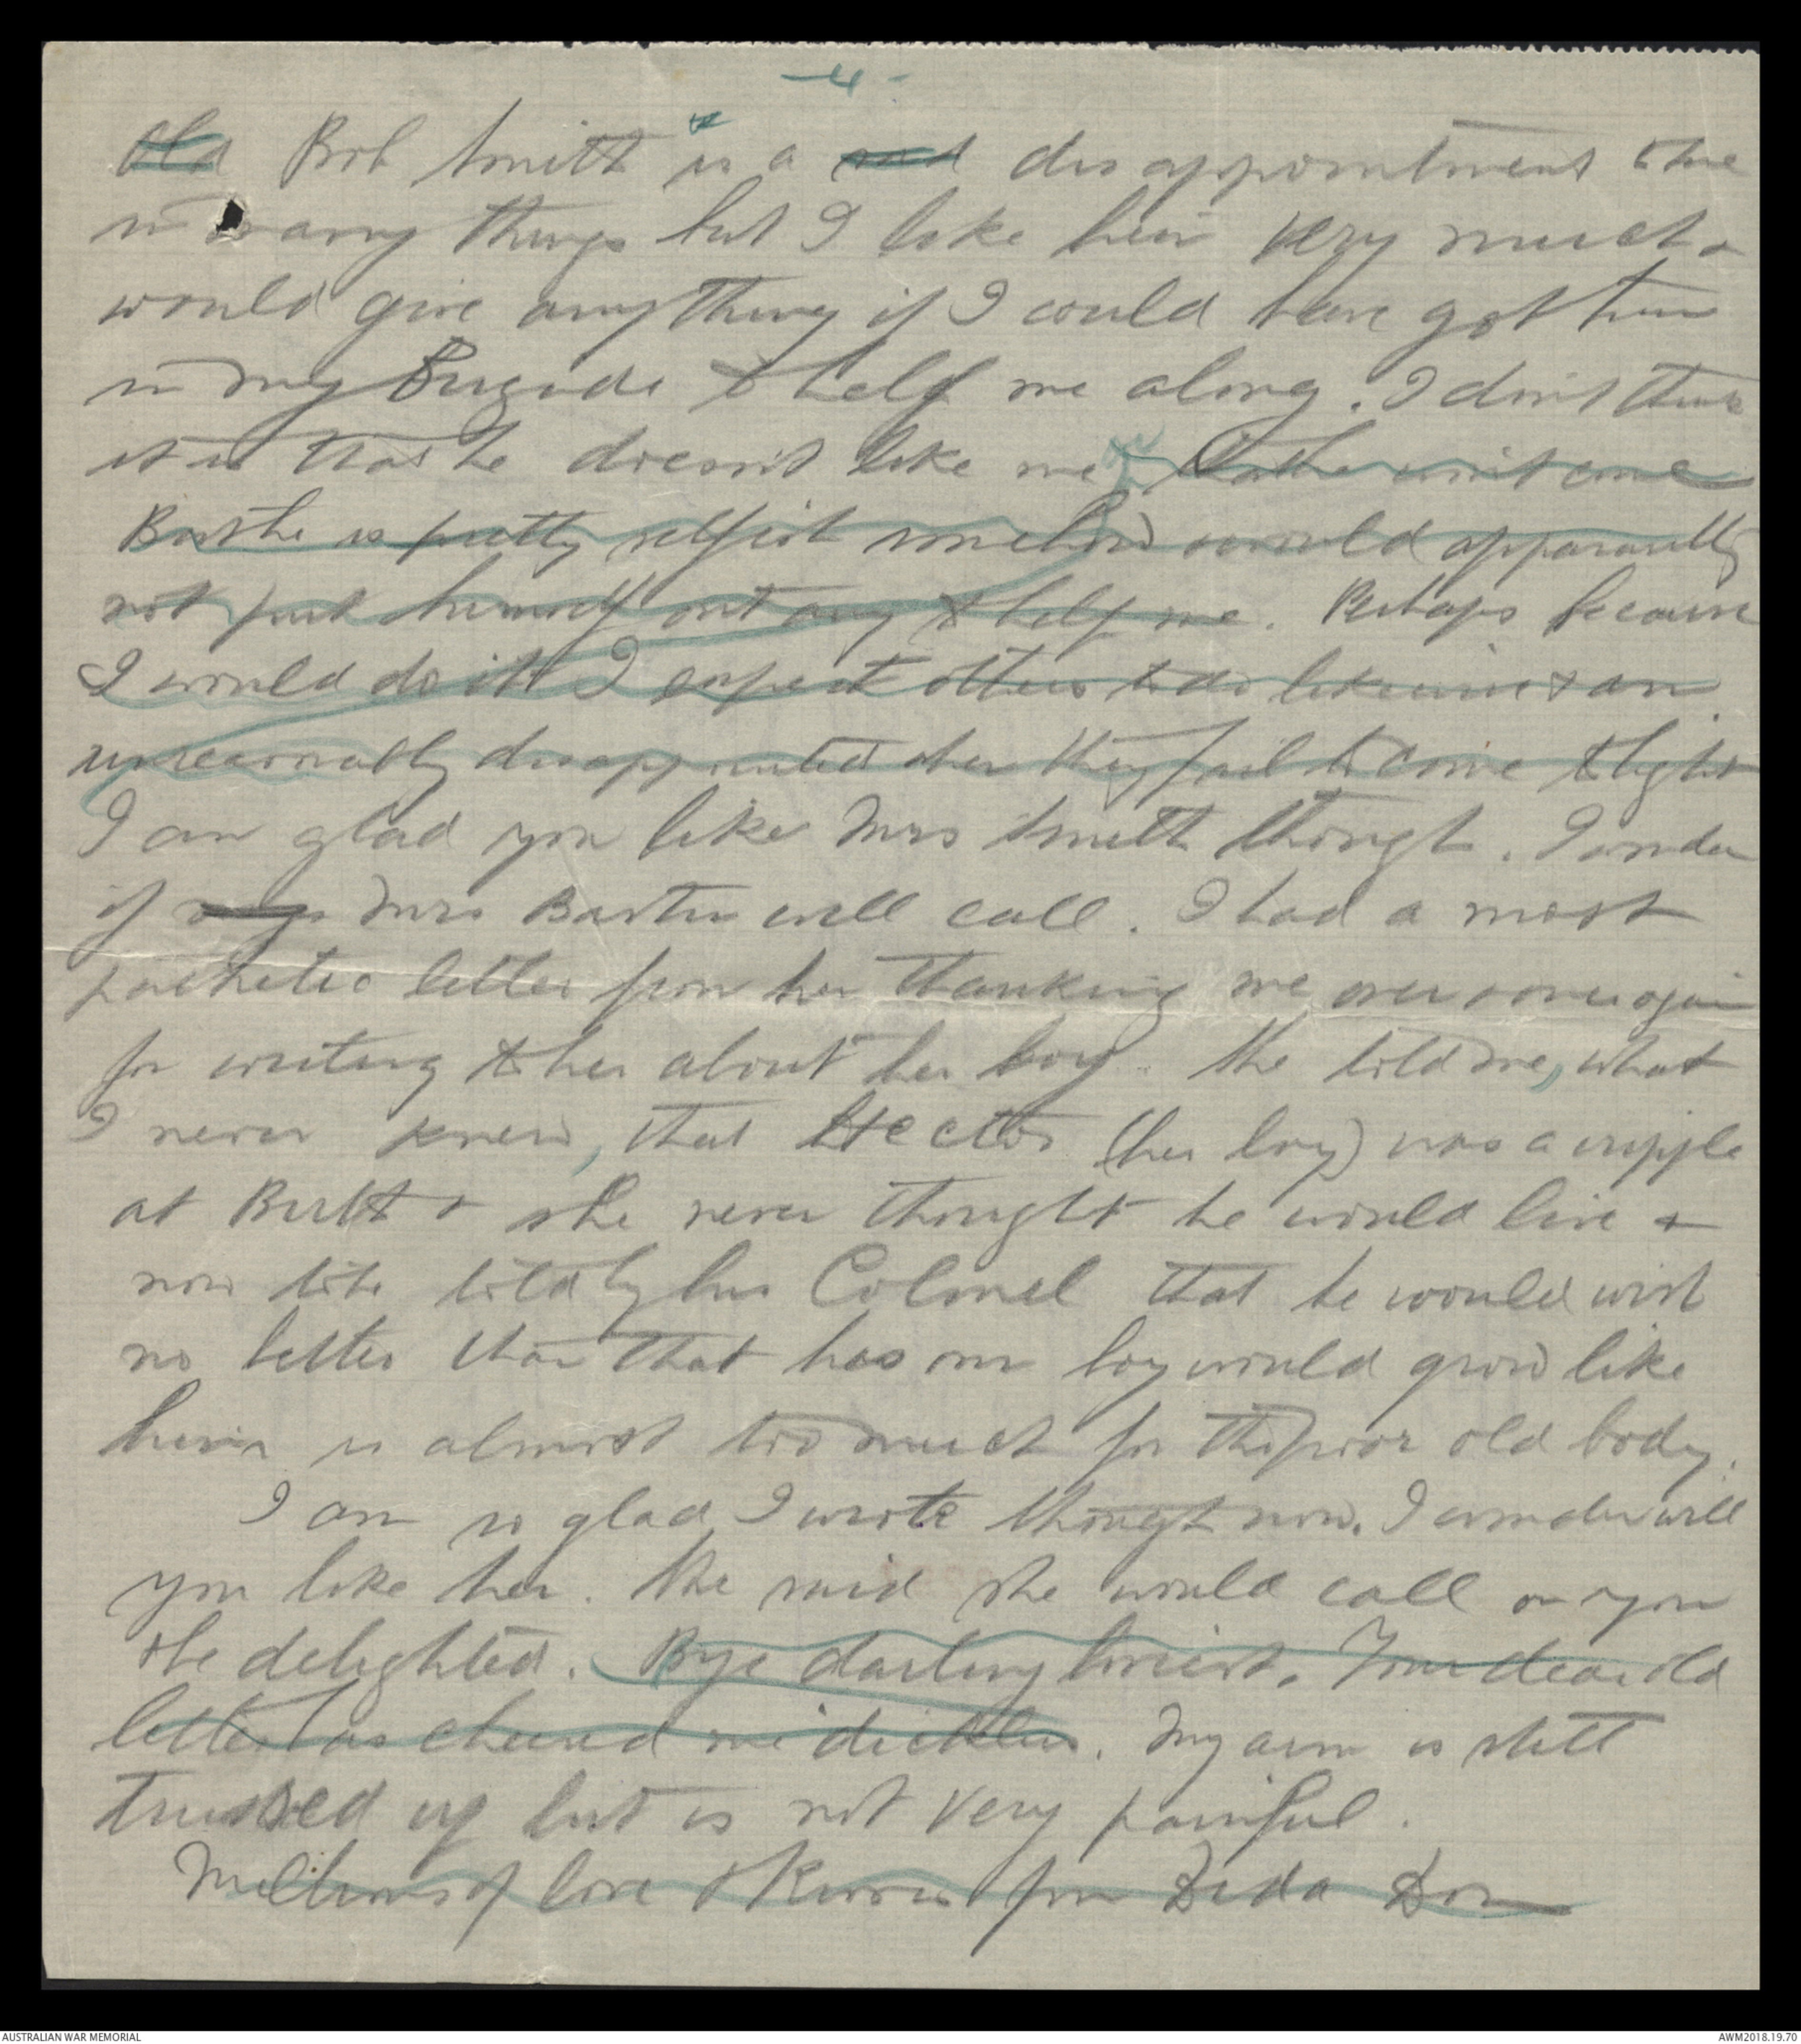 - 4 -
Old Bob Smith is a sad disappointment to me
in many things but I like him very much &
would give anything if I could have got him
in my Brigade to help me along. I don't think
it is that he doesn't like me & that he won't come
But he is pretty selfish somehow would apparently
not put himself out any to help me. Perhaps because
I would do it I expect others to do likewise & am
unreasonably disappointed when they fail to come to light
I am glad you like Mrs Smith though. I wonder
if Mrs Baxter will call. I had a most
pathetic letter from her thanking me over & over again
for writing to her about her boy. She told me, what
I never knew, that Hector (her boy) was a cripple
at Birth & she never thought he would live &
now to be told by his Colonel that he would wish
no better than that his own boy would grow like
him is almost too much for the poor old body.
I am so glad I wrote though now. I wonder will
you like her. She said she would call on you
& be delighted. Bye darling sweetest. Your dear old
letter has cheered me . My arm is still
trussed up but is not very painful.
Millions of love & Kisses from Dida Don